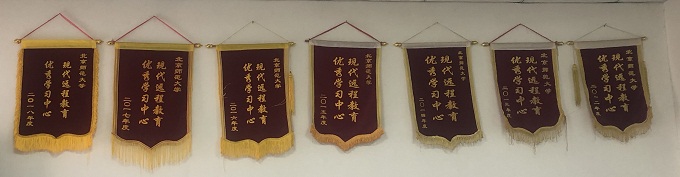 北京师范大学
现代远程教育
优秀学习中心
二〇一八年度
北京师范大学
现代远程教育
优秀学习中心
二〇一七年度
北京师范大学
现代远程教育
优秀学习中心
二〇一六年度
北京师范大学
现代远程教育
优秀学习中心
二〇一五年度
北京师范大学
现代远程教育
优秀学习中心
二〇一四年度
北京师范大学
现代远程教育
优秀学习中心
二〇一三年度
北京师范大学
现代远程教育
优秀学习中心
二〇一二年度